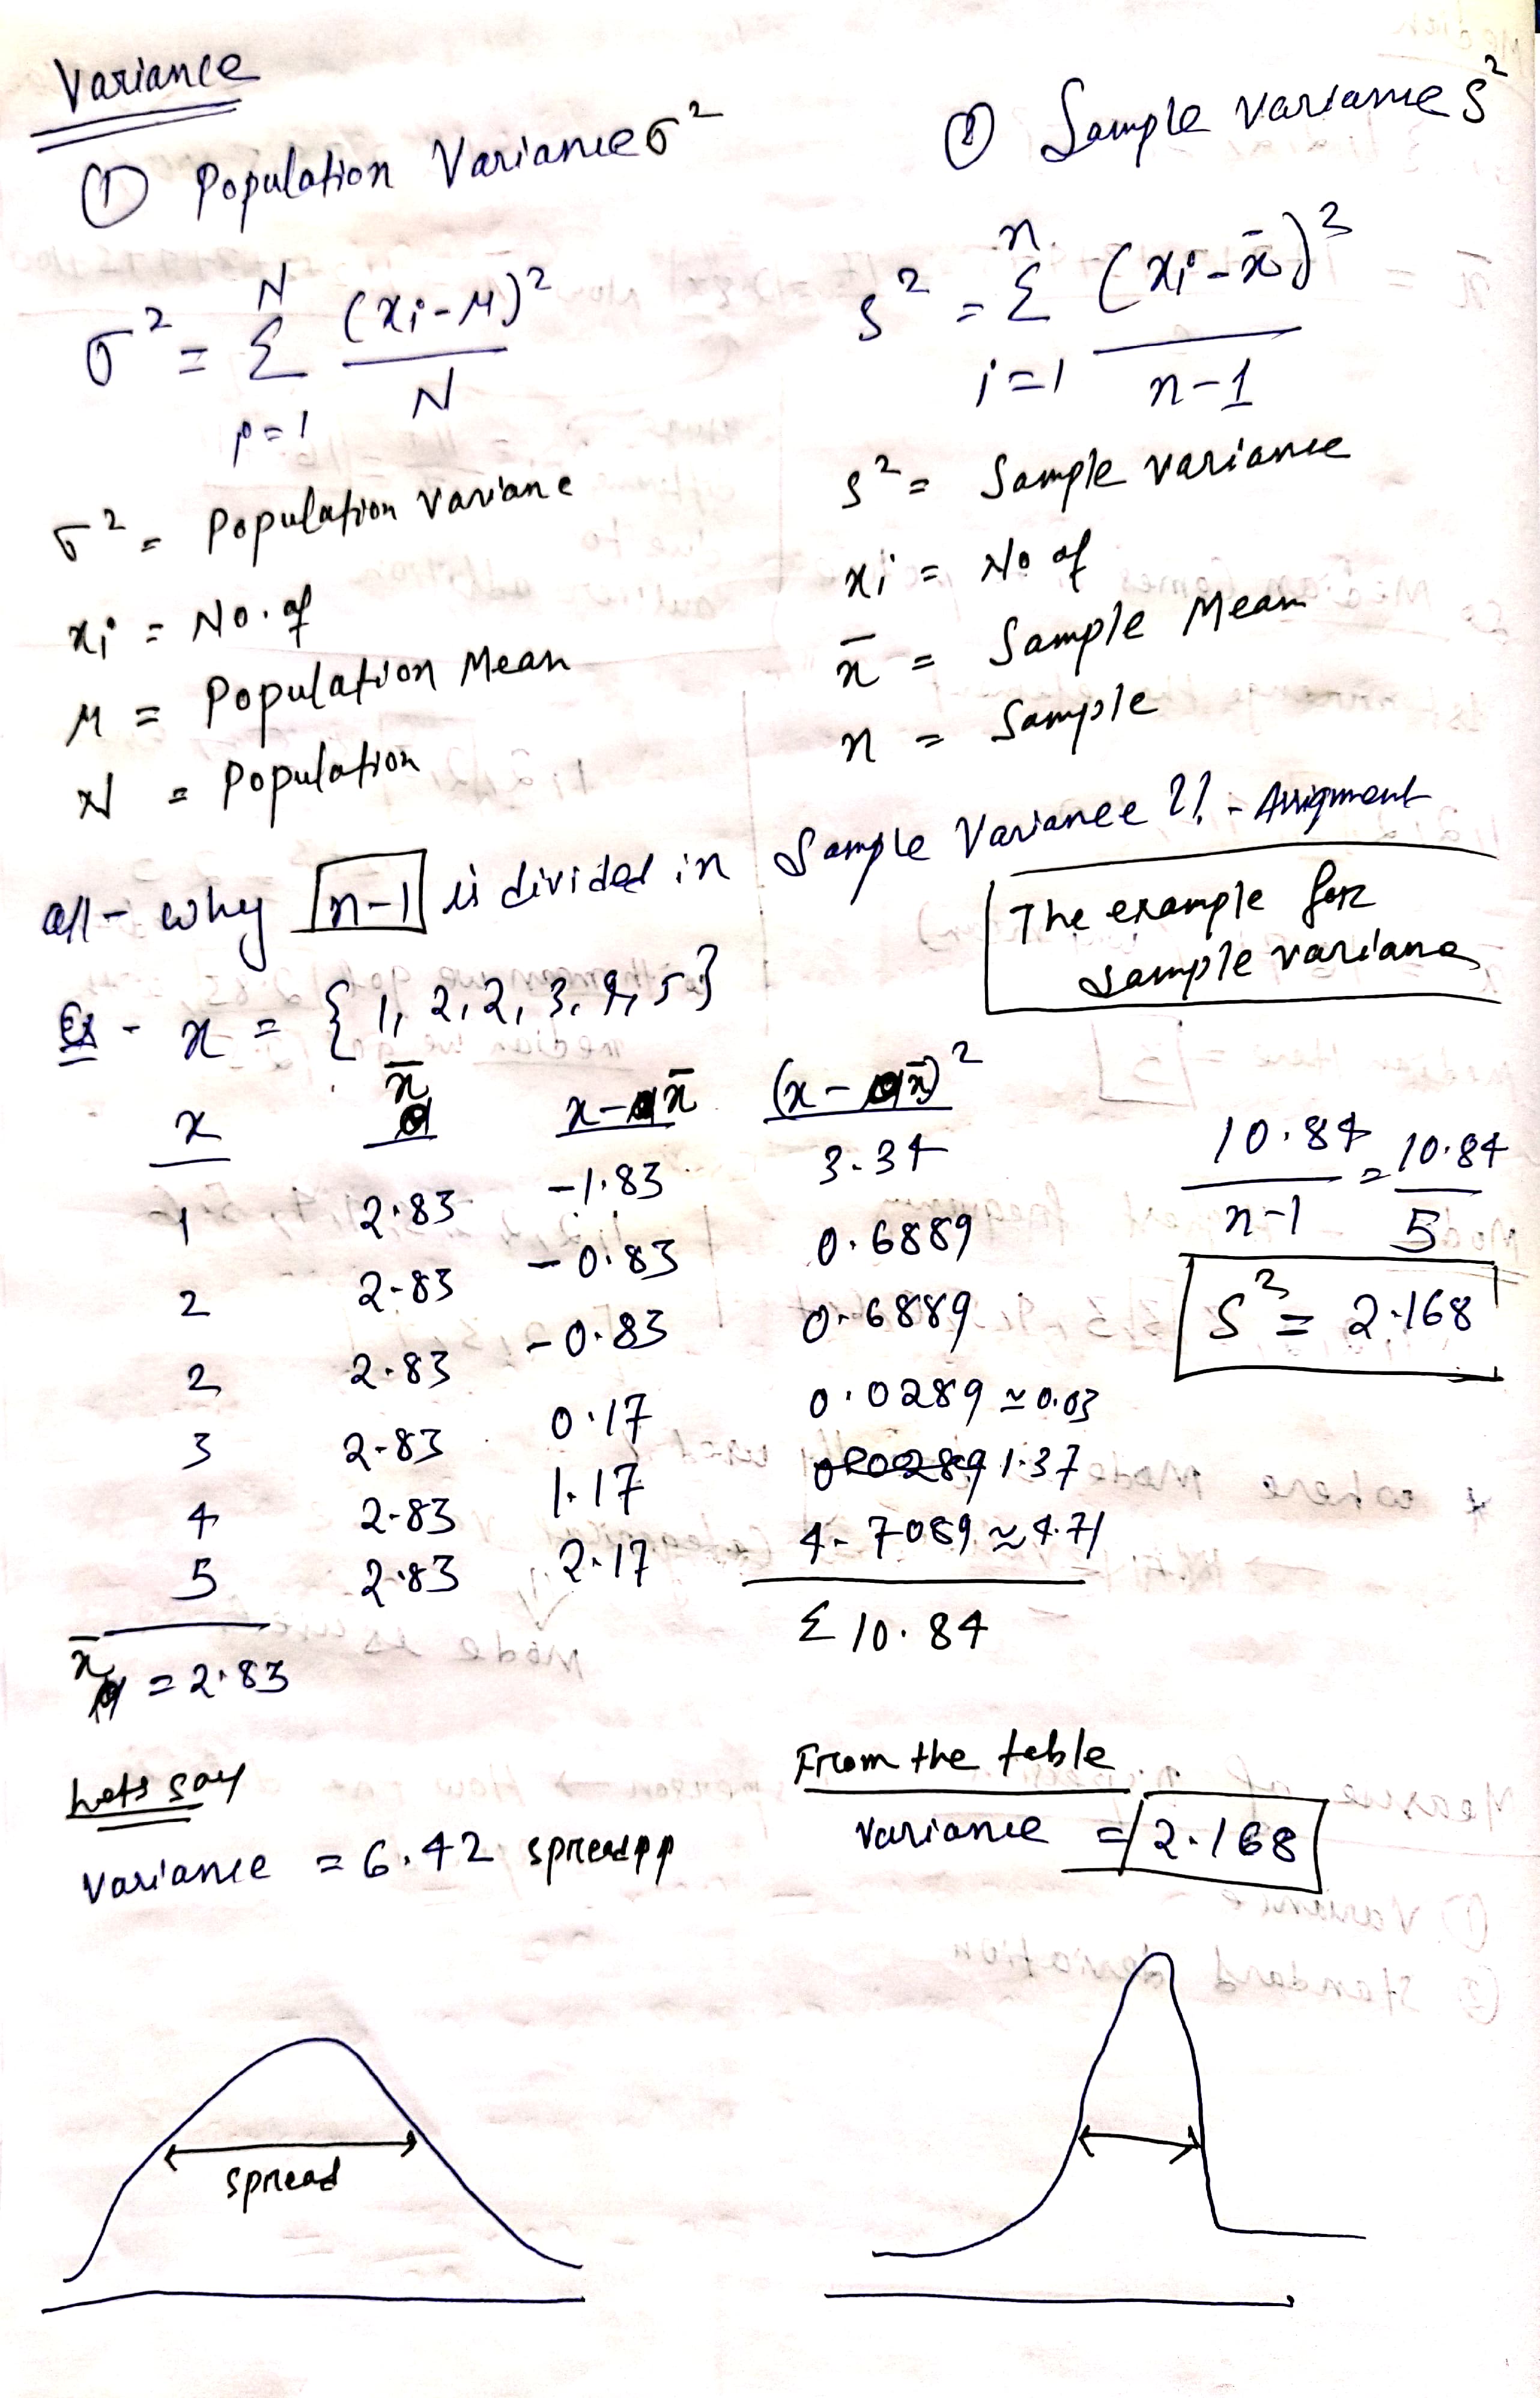 Variance
① Population Variance σ²
σ² = N Σ i=1 (xi-μ)² / N
σ² = Population Variane
xi = No. of
μ = Population Mean
N = Population
② Sample variance s²
s² = n Σ i=1 (xi-x̄)² / n-1
s² = Sample variance
xi = No of
x̄ = Sample Mean
n = Sample
why n-1 is divided in Sample Variance ?! - Assigment
The example for
sample varianc
Ex - x = {1, 2, 2, 3, 4, 5}
x x̄ x-x̄ (x-x̄)²
1 2.83 -1.83 3.34
2 2.83 -0.83 0.6889
2 2.83 -0.83 0.6889
3 2.83 0.17 0.0289 ≃ 0.03
4 2.83 1.17 1.37
5 2.83 2.17 4.7089 ≃ 4.71
x̄ = 2.83
Σ 10.84
10.84 / n-1 = 10.84 / 5
S² = 2.168
Lets say
variance = 6.42
From the table
variance = 2.168
spread